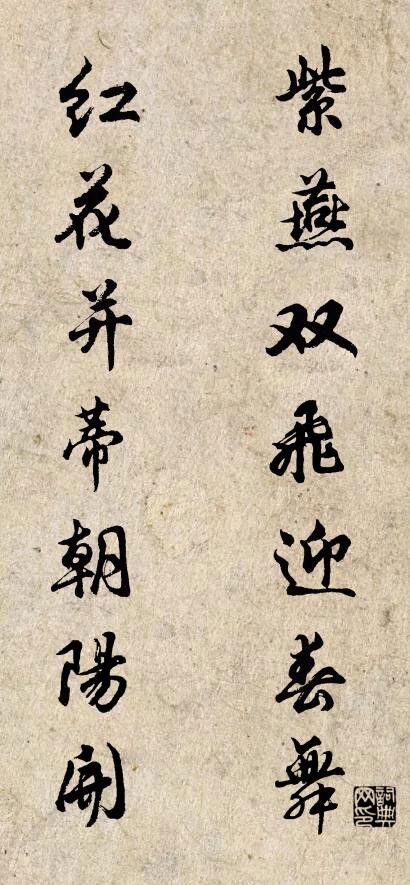 紫燕双飞迎春舞
红花并蒂朝陽開
詞典网印